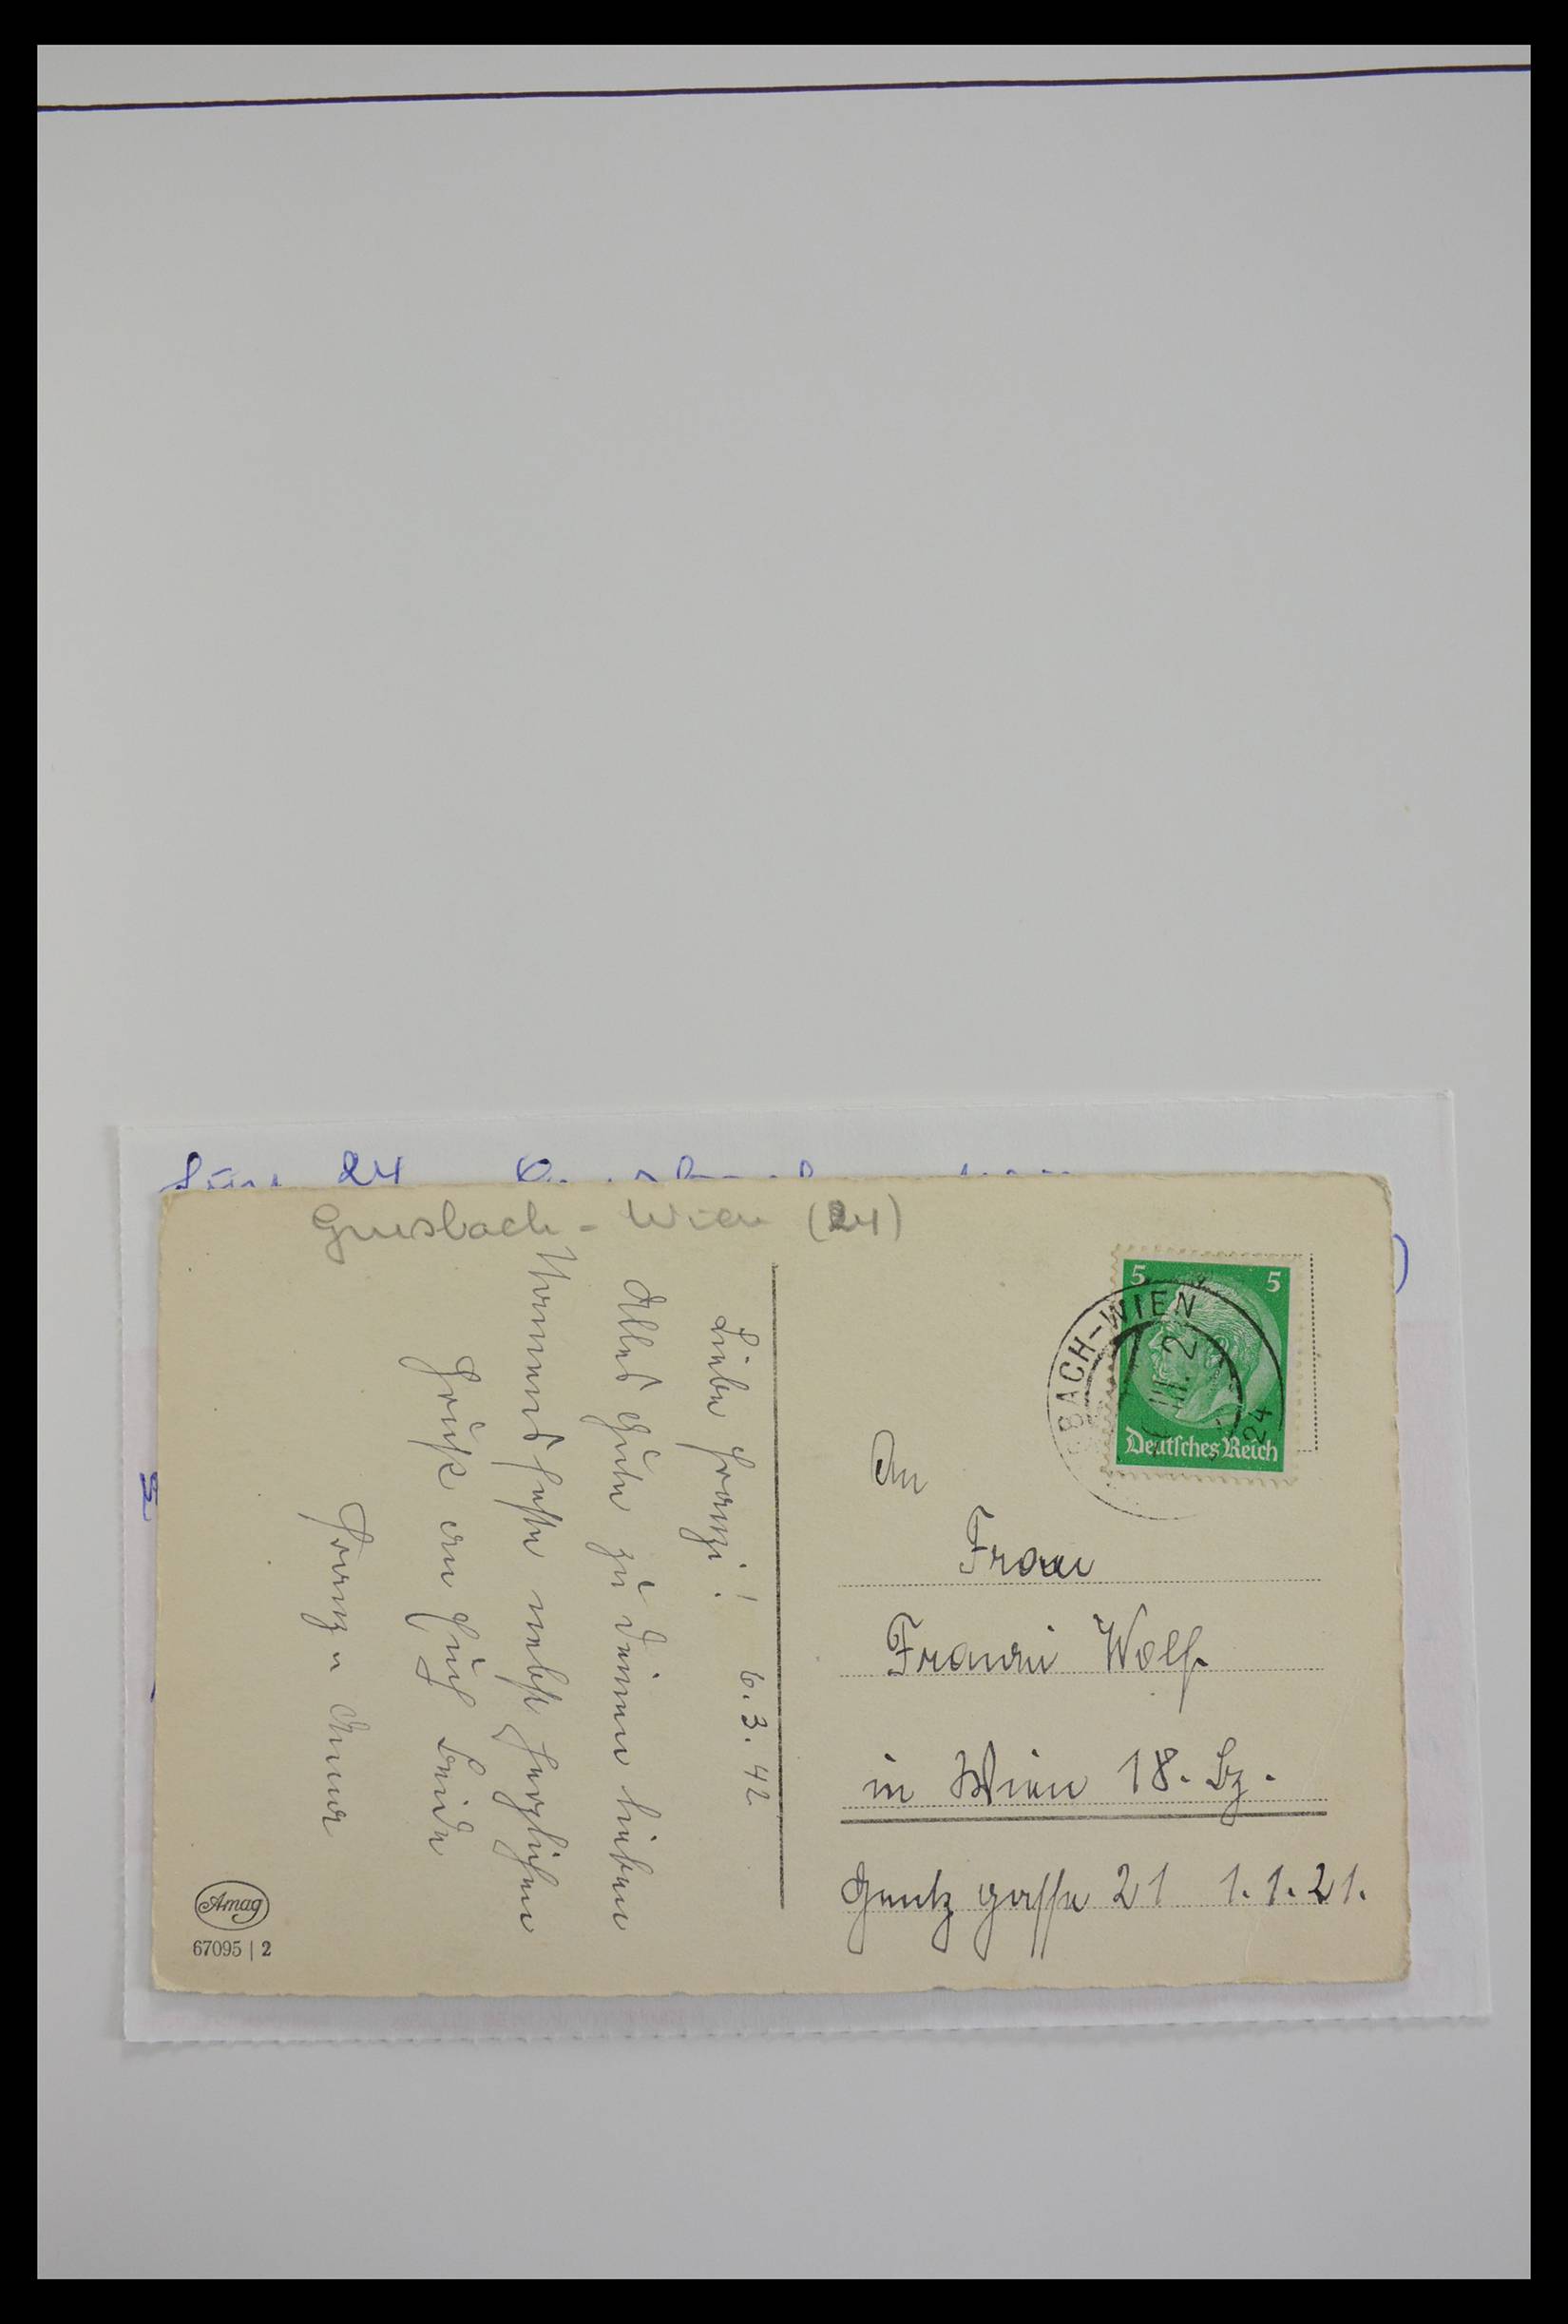 24
Grusbach - Wien (24)
6.3.42
Liebe Franzi!
Alles Gute zu Deinem lieben
Namensfeste nebst herzlichen
Grüße an Euch beide
Franz u Anna
5 5
Deutsches Reich
BACH-WIEN
III. 2
24
An
Frau
Franzi Wolf
in Wien 18. Bz.
Gentzgasse 21 1.1.21.
Amag
67095 | 2